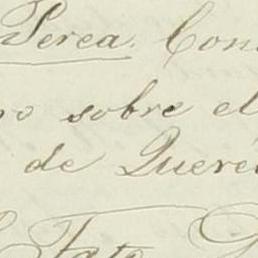 Perea. Con
ro sobre el
de Queré